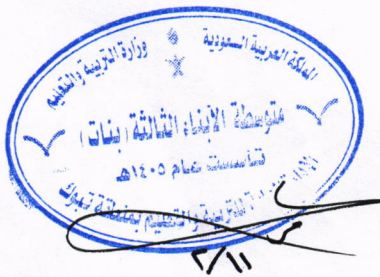 المملكة العربية السعودية
وزارة التربية والتعليم
متوسطة الأبناء الثالثة (بنات)
تأسست عام ١٤٠٥هـ
التربية والتعليم بمنطقة تبوك
٢/١١